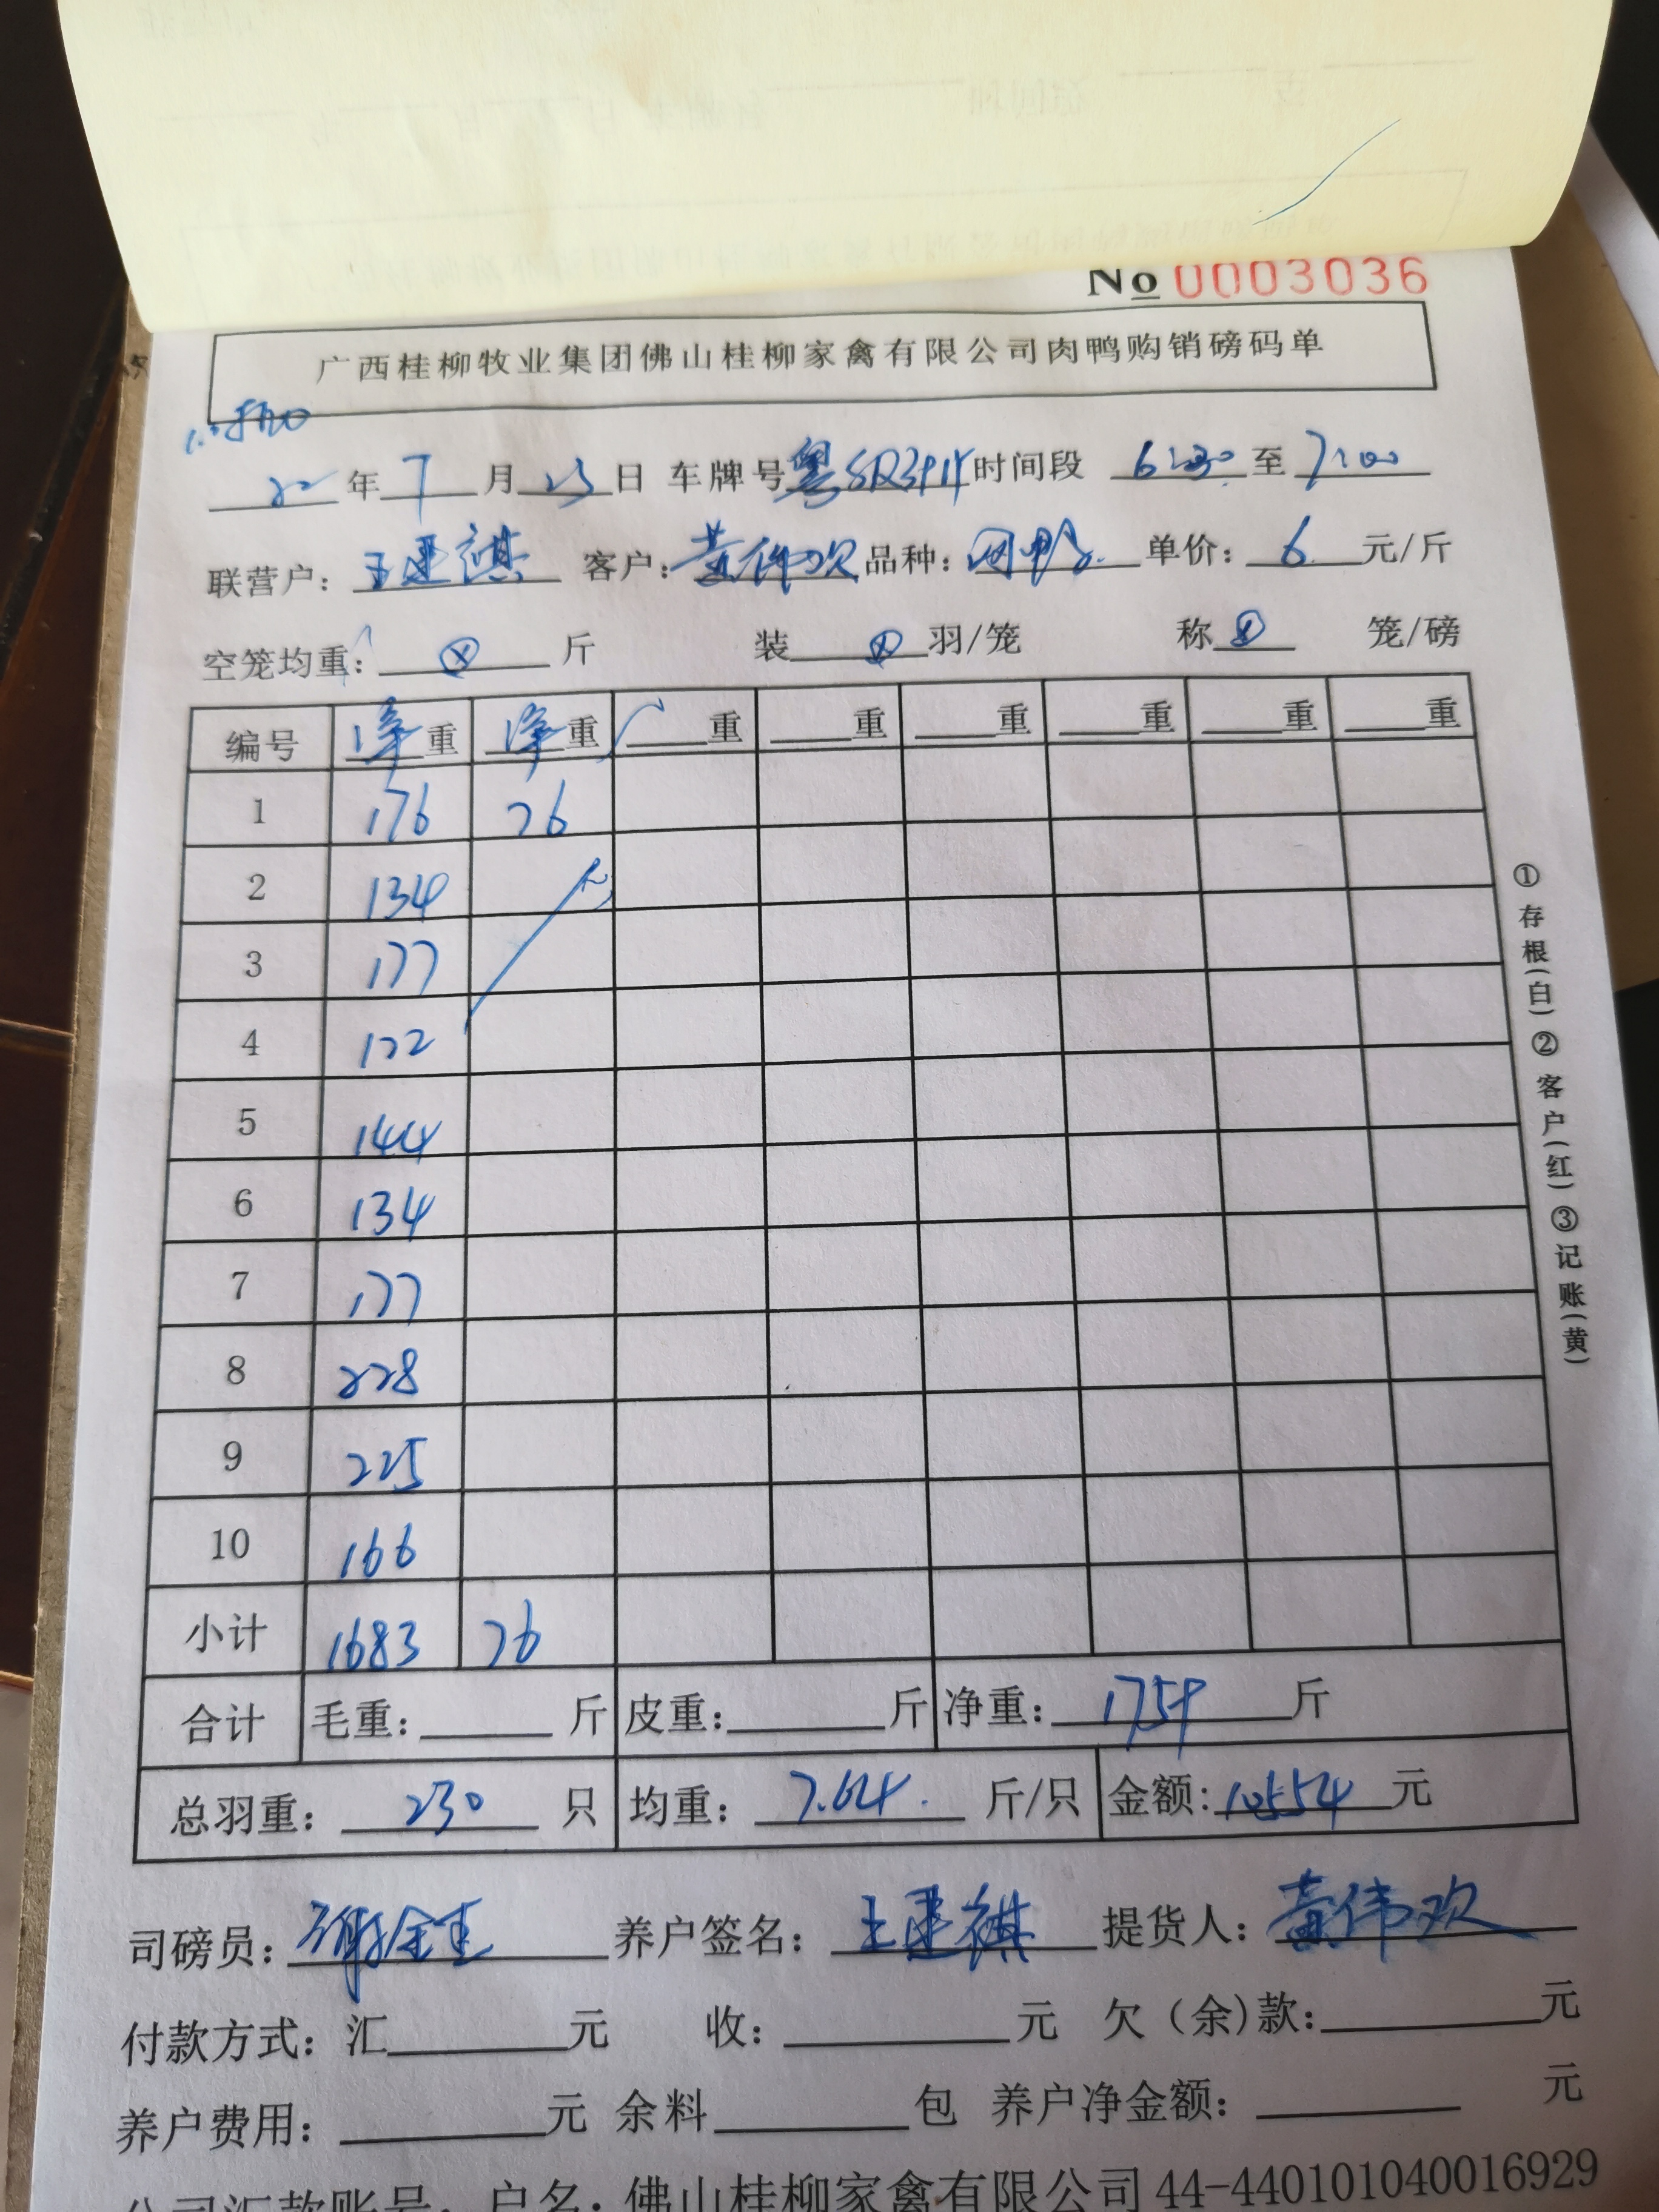 No 0003036
广西桂柳牧业集团佛山桂柳家禽有限公司肉鸭购销磅码单
22 年 7 月 23 日 车牌号 粤 时间段 6:30 至 7:00
联营户: 王建祺 客户: 黄伟欢 品种: 肉鸭 单价: 6 元/斤
空笼均重: 斤 装 羽/笼 称 笼/磅
编号 净重 净重 重 重 重 重 重 重
1 176 76
2 134
3 177
4 122
5 144
6 134
7 177
8 228
9 225
10 166
小计 1683 76
合计 毛重: 斤 皮重: 斤 净重: 1759 斤
总羽重: 230 只 均重: 7.64 斤/只 金额: 10554 元
司磅员: 谢 养户签名: 王建祺 提货人: 黄伟欢
付款方式: 汇 元 收: 元 欠(余)款: 元
养户费用: 元 余料 包 养户净金额: 元
公司汇款账号: 户名: 佛山桂柳家禽有限公司 44-440101040016929
①存根(白)②客户(红)③记账(黄)